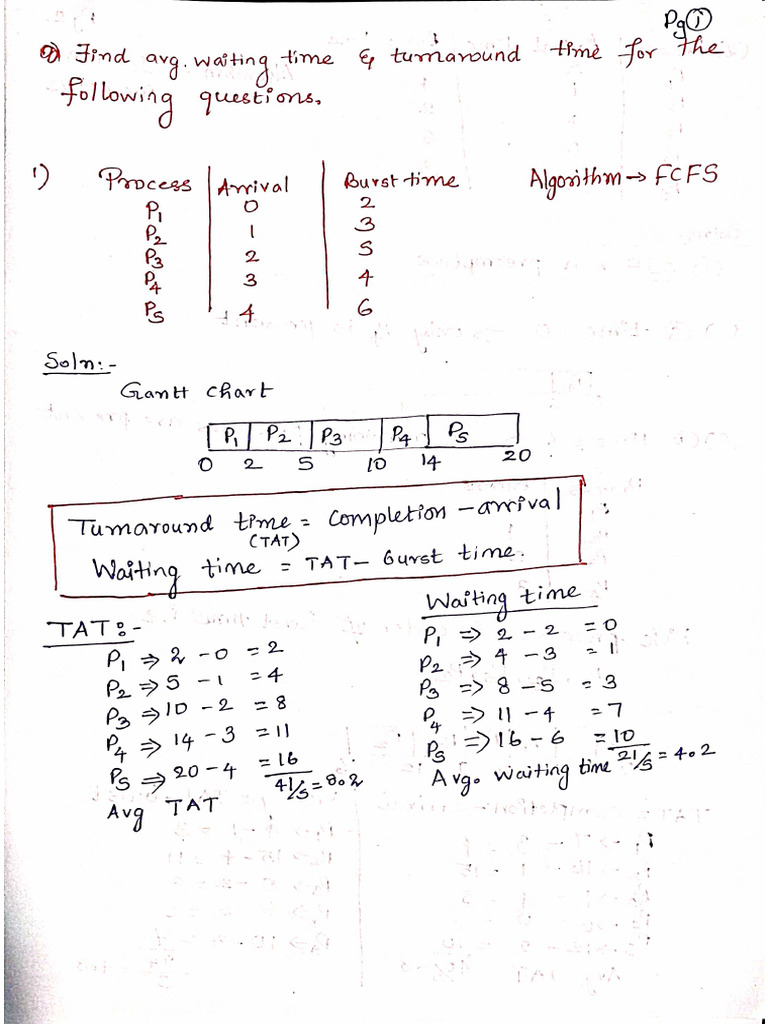 Pg ①
Q) Find avg. waiting time & turnaround time for the
following questions.
1) Process Arrival Burst time Algorithm → FCFS
P1 0 2
P2 1 3
P3 2 5
P4 3 4
P5 4 6
Soln:-
Gantt chart
P1 P2 P3 P4 P5
0 2 5 10 14 20
Turnaround time = completion - arrival
(TAT)
Waiting time = TAT - Burst time.
Waiting time
TAT:-
P1 ⇒ 2 - 0 = 2
P2 ⇒ 5 - 1 = 4
P3 ⇒ 10 - 2 = 8
P4 ⇒ 14 - 3 = 11
P5 ⇒ 20 - 4 = 16
41/5 = 8.2
Avg TAT
P1 ⇒ 2 - 2 = 0
P2 ⇒ 4 - 3 = 1
P3 ⇒ 8 - 5 = 3
P4 ⇒ 11 - 4 = 7
P5 ⇒ 16 - 6 = 10
Avg. waiting time 21/5 = 4.2